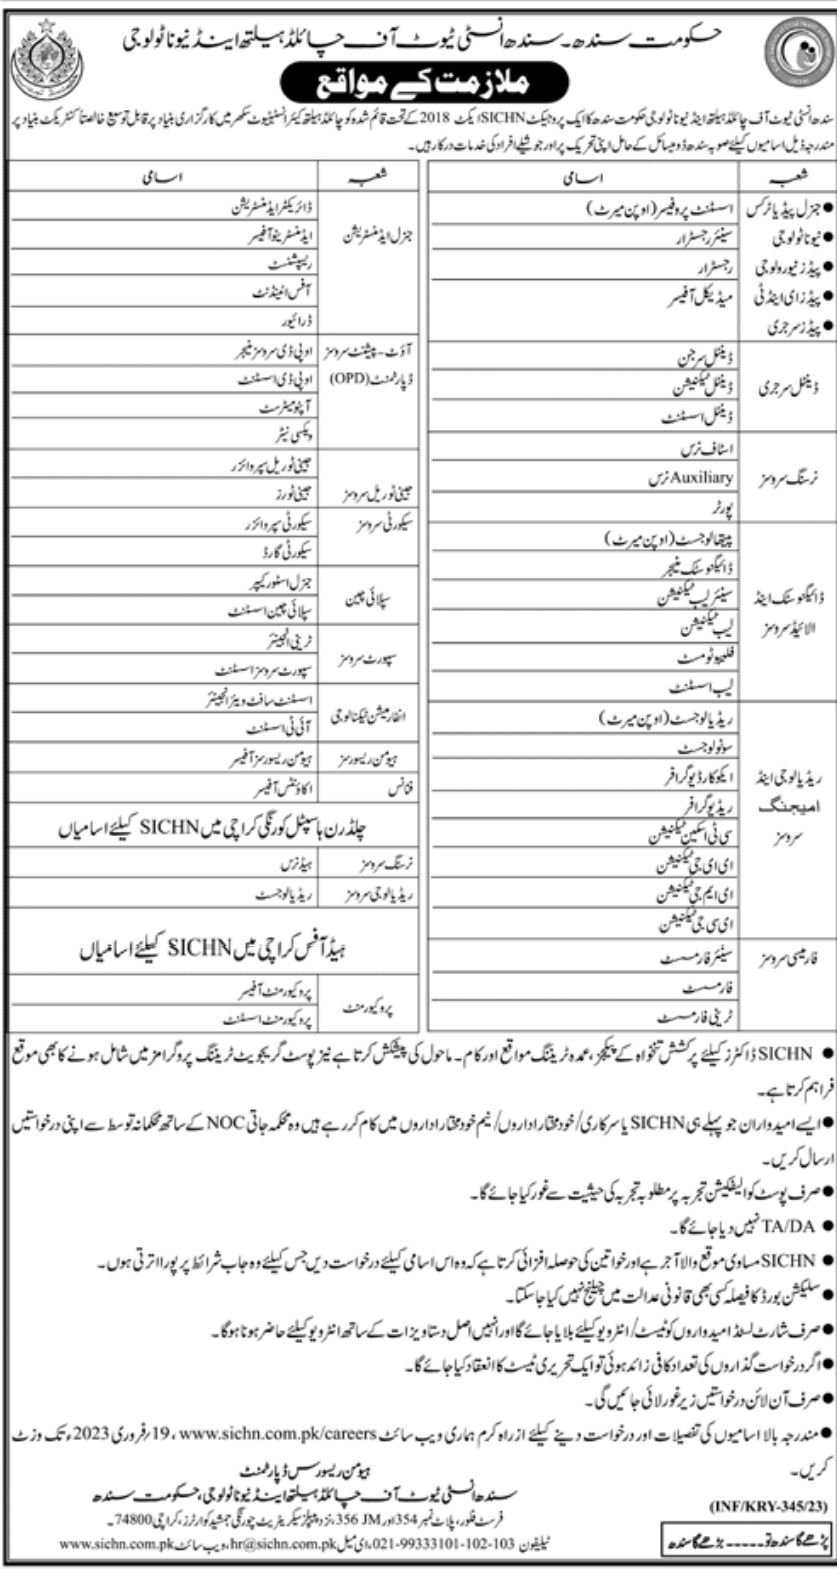 حکومت سندھ۔ سندھ انسٹی ٹیوٹ آف چائلڈ ہیلتھ اینڈ نیوناٹولوجی
ملازمت کے مواقع
سندھ انسٹی ٹیوٹ آف چائلڈ ہیلتھ اینڈ نیوناٹولوجی حکومت سندھ کا ایک پروجیکٹ SICHN ایکٹ 2018 کے تحت قائم شدہ کو چائلڈ ہیلتھ کیئر انسٹیٹیوٹ سکھر میں کارگزاری بنیاد پر قابل توسیع خالصتاً کنٹریکٹ بنیاد پر
مندرجہ ذیل اسامیوں کیلئے صوبہ سندھ ڈومیسائل کے حامل اپنی تحریک پر اور جوشیلے افراد کی خدمات درکار ہیں۔
شعبہ اسامی
● جنرل پیڈیاٹرکس اسسٹنٹ پروفیسر (اوپن میرٹ)
● نیوناٹولوجی سینئر رجسٹرار
● پیڈز نیورولوجی رجسٹرار
● پیڈز ای اینڈ ٹی میڈیکل آفیسر
● پیڈز سرجری
ڈینٹل سرجن
ڈینٹل سرجری ڈینٹل ٹیکنیشن
ڈینٹل اسسٹنٹ
اسٹاف نرس
نرسنگ سروسز Auxiliary نرس
پورٹر
پیتھالوجسٹ (اوپن میرٹ)
ڈائیگنوسٹک منیجر
ڈائیگنوسٹک اینڈ سینئر لیب ٹیکنیشن
الائیڈ سروسز لیب ٹیکنیشن
فلیبوٹومسٹ
لیب اسسٹنٹ
ریڈیالوجسٹ (اوپن میرٹ)
سونولوجسٹ
ریڈیالوجی اینڈ ایکوکارڈیوگرافر
امیجنگ ریڈیوگرافر
سروسز سی ٹی اسکین ٹیکنیشن
ای ای جی ٹیکنیشن
ای ایم جی ٹیکنیشن
ای سی جی ٹیکنیشن
فارمیسی سروسز سینئر فارمسٹ
فارمسٹ
ٹرینی فارمسٹ
شعبہ اسامی
ڈائریکٹر ایڈمنسٹریشن
جنرل ایڈمنسٹریشن ایڈمنسٹریٹو آفیسر
ریپشنسٹ
آفس اٹینڈنٹ
ڈرائیور
آؤٹ-پیشنٹ سروسز او پی ڈی سروسز منیجر
ڈپارٹمنٹ (OPD) او پی ڈی اسسٹنٹ
آپٹومیٹرسٹ
ویکسی نیٹر
جینی ٹوریل سپروائزر
جینی ٹوریل سروسز جینی ٹورز
سیکورٹی سروسز سیکورٹی سپروائزر
سیکورٹی گارڈ
سپلائی چین جنرل اسٹور کیپر
سپلائی چین اسسٹنٹ
سپورٹ سروسز ٹرینی انجینئر
سپورٹ سروسز اسسٹنٹ
انفارمیشن ٹیکنالوجی اسسٹنٹ سافٹ ویئر انجینئر
آئی ٹی اسسٹنٹ
ہیومن ریسورسز ہیومن ریسورسز آفیسر
فنانس اکاؤنٹس آفیسر
چلڈرن ہاسپٹل کورنگی کراچی میں SICHN کیلئے اسامیاں
نرسنگ سروسز ہیڈ نرس
ریڈیالوجی سروسز ریڈیالوجسٹ
ہیڈ آفس کراچی میں SICHN کیلئے اسامیاں
پروکیورمنٹ پروکیورمنٹ آفیسر
پروکیورمنٹ اسسٹنٹ
● SICHN ڈاکٹرز کیلئے پرکشش تنخواہ کے پیکجز، عمدہ ٹریننگ مواقع اور کام۔ ماحول کی پیشکش کرتا ہے نیز پوسٹ گریجویٹ ٹریننگ پروگرامز میں شامل ہونے کا بھی موقع
فراہم کرتا ہے۔
● ایسے امیدواران جو پہلے ہی SICHN یا سرکاری/خودمختار اداروں/نیم خودمختار اداروں میں کام کر رہے ہیں وہ محکمہ جاتی NOC کے ساتھ محکمانہ توسط سے اپنی درخواستیں
ارسال کریں۔
● صرف پوسٹ کوالیفکیشن تجربہ پر مطلوبہ تجربہ کی حیثیت سے غور کیا جائے گا۔
● TA/DA نہیں دیا جائے گا۔
● SICHN مساوی موقع والا آجر ہے اور خواتین کی حوصلہ افزائی کرتا ہے کہ وہ اس اسامی کیلئے درخواست دیں جس کیلئے وہ جاب شرائط پر پورا اترتی ہوں۔
● سلیکشن بورڈ کا فیصلہ کسی بھی قانونی عدالت میں چیلنج نہیں کیا جا سکتا۔
● صرف شارٹ لسٹڈ امیدواروں کو ٹیسٹ/انٹرویو کیلئے بلایا جائے گا اور انہیں اصل دستاویزات کے ساتھ انٹرویو کیلئے حاضر ہونا ہوگا۔
● اگر درخواست گذاروں کی تعداد کافی زائد ہوئی تو ایک تحریری ٹیسٹ کا انعقاد کیا جائے گا۔
● صرف آن لائن درخواستیں زیر غور لائی جائیں گی۔
● مندرجہ بالا اسامیوں کی تفصیلات اور درخواست دینے کیلئے از راہ کرم ہماری ویب سائٹ www.sichn.com.pk/careers، 19؍فروری 2023ء تک وزٹ
کریں۔
ہیومن ریسورس ڈپارٹمنٹ
سندھ انسٹی ٹیوٹ آف چائلڈ ہیلتھ اینڈ نیوناٹولوجی، حکومت سندھ
فرسٹ فلور، پلاٹ نمبر 354 اور JM 356، نزد پیپلز سیکریٹریٹ چورنگی جمشید کوارٹرز، کراچی 74800۔
ٹیلیفون 103-102-021-99333101، ای میل hr@sichn.com.pk، ویب سائٹ www.sichn.com.pk
(INF/KRY-345/23)
پڑھے گا سندھ تو ----- بڑھے گا سندھ